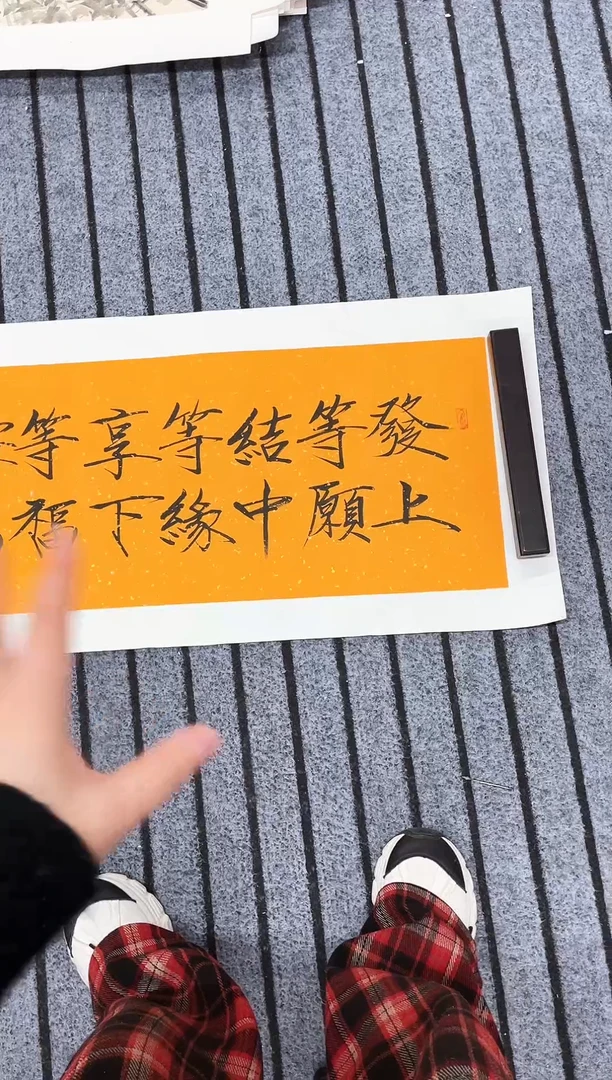 發上
等願
結中
等緣
享下
等福